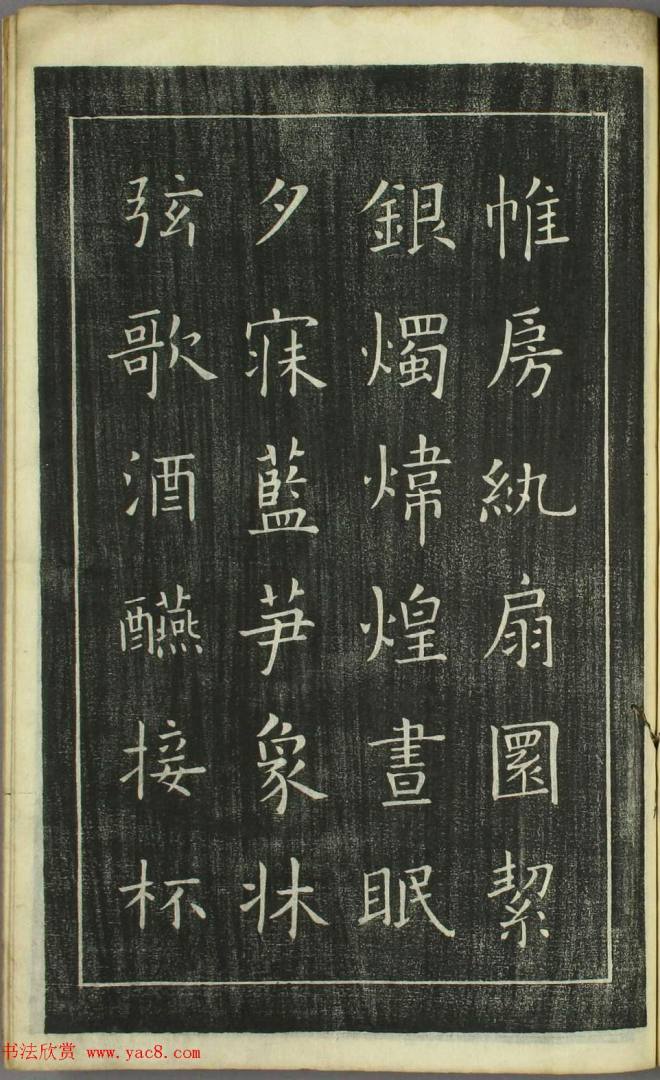 帷房紈扇圎絜
銀燭煒煌晝眠
夕寐藍笋象牀
弦歌酒醼接杯
书法欣赏 www.yac8.com